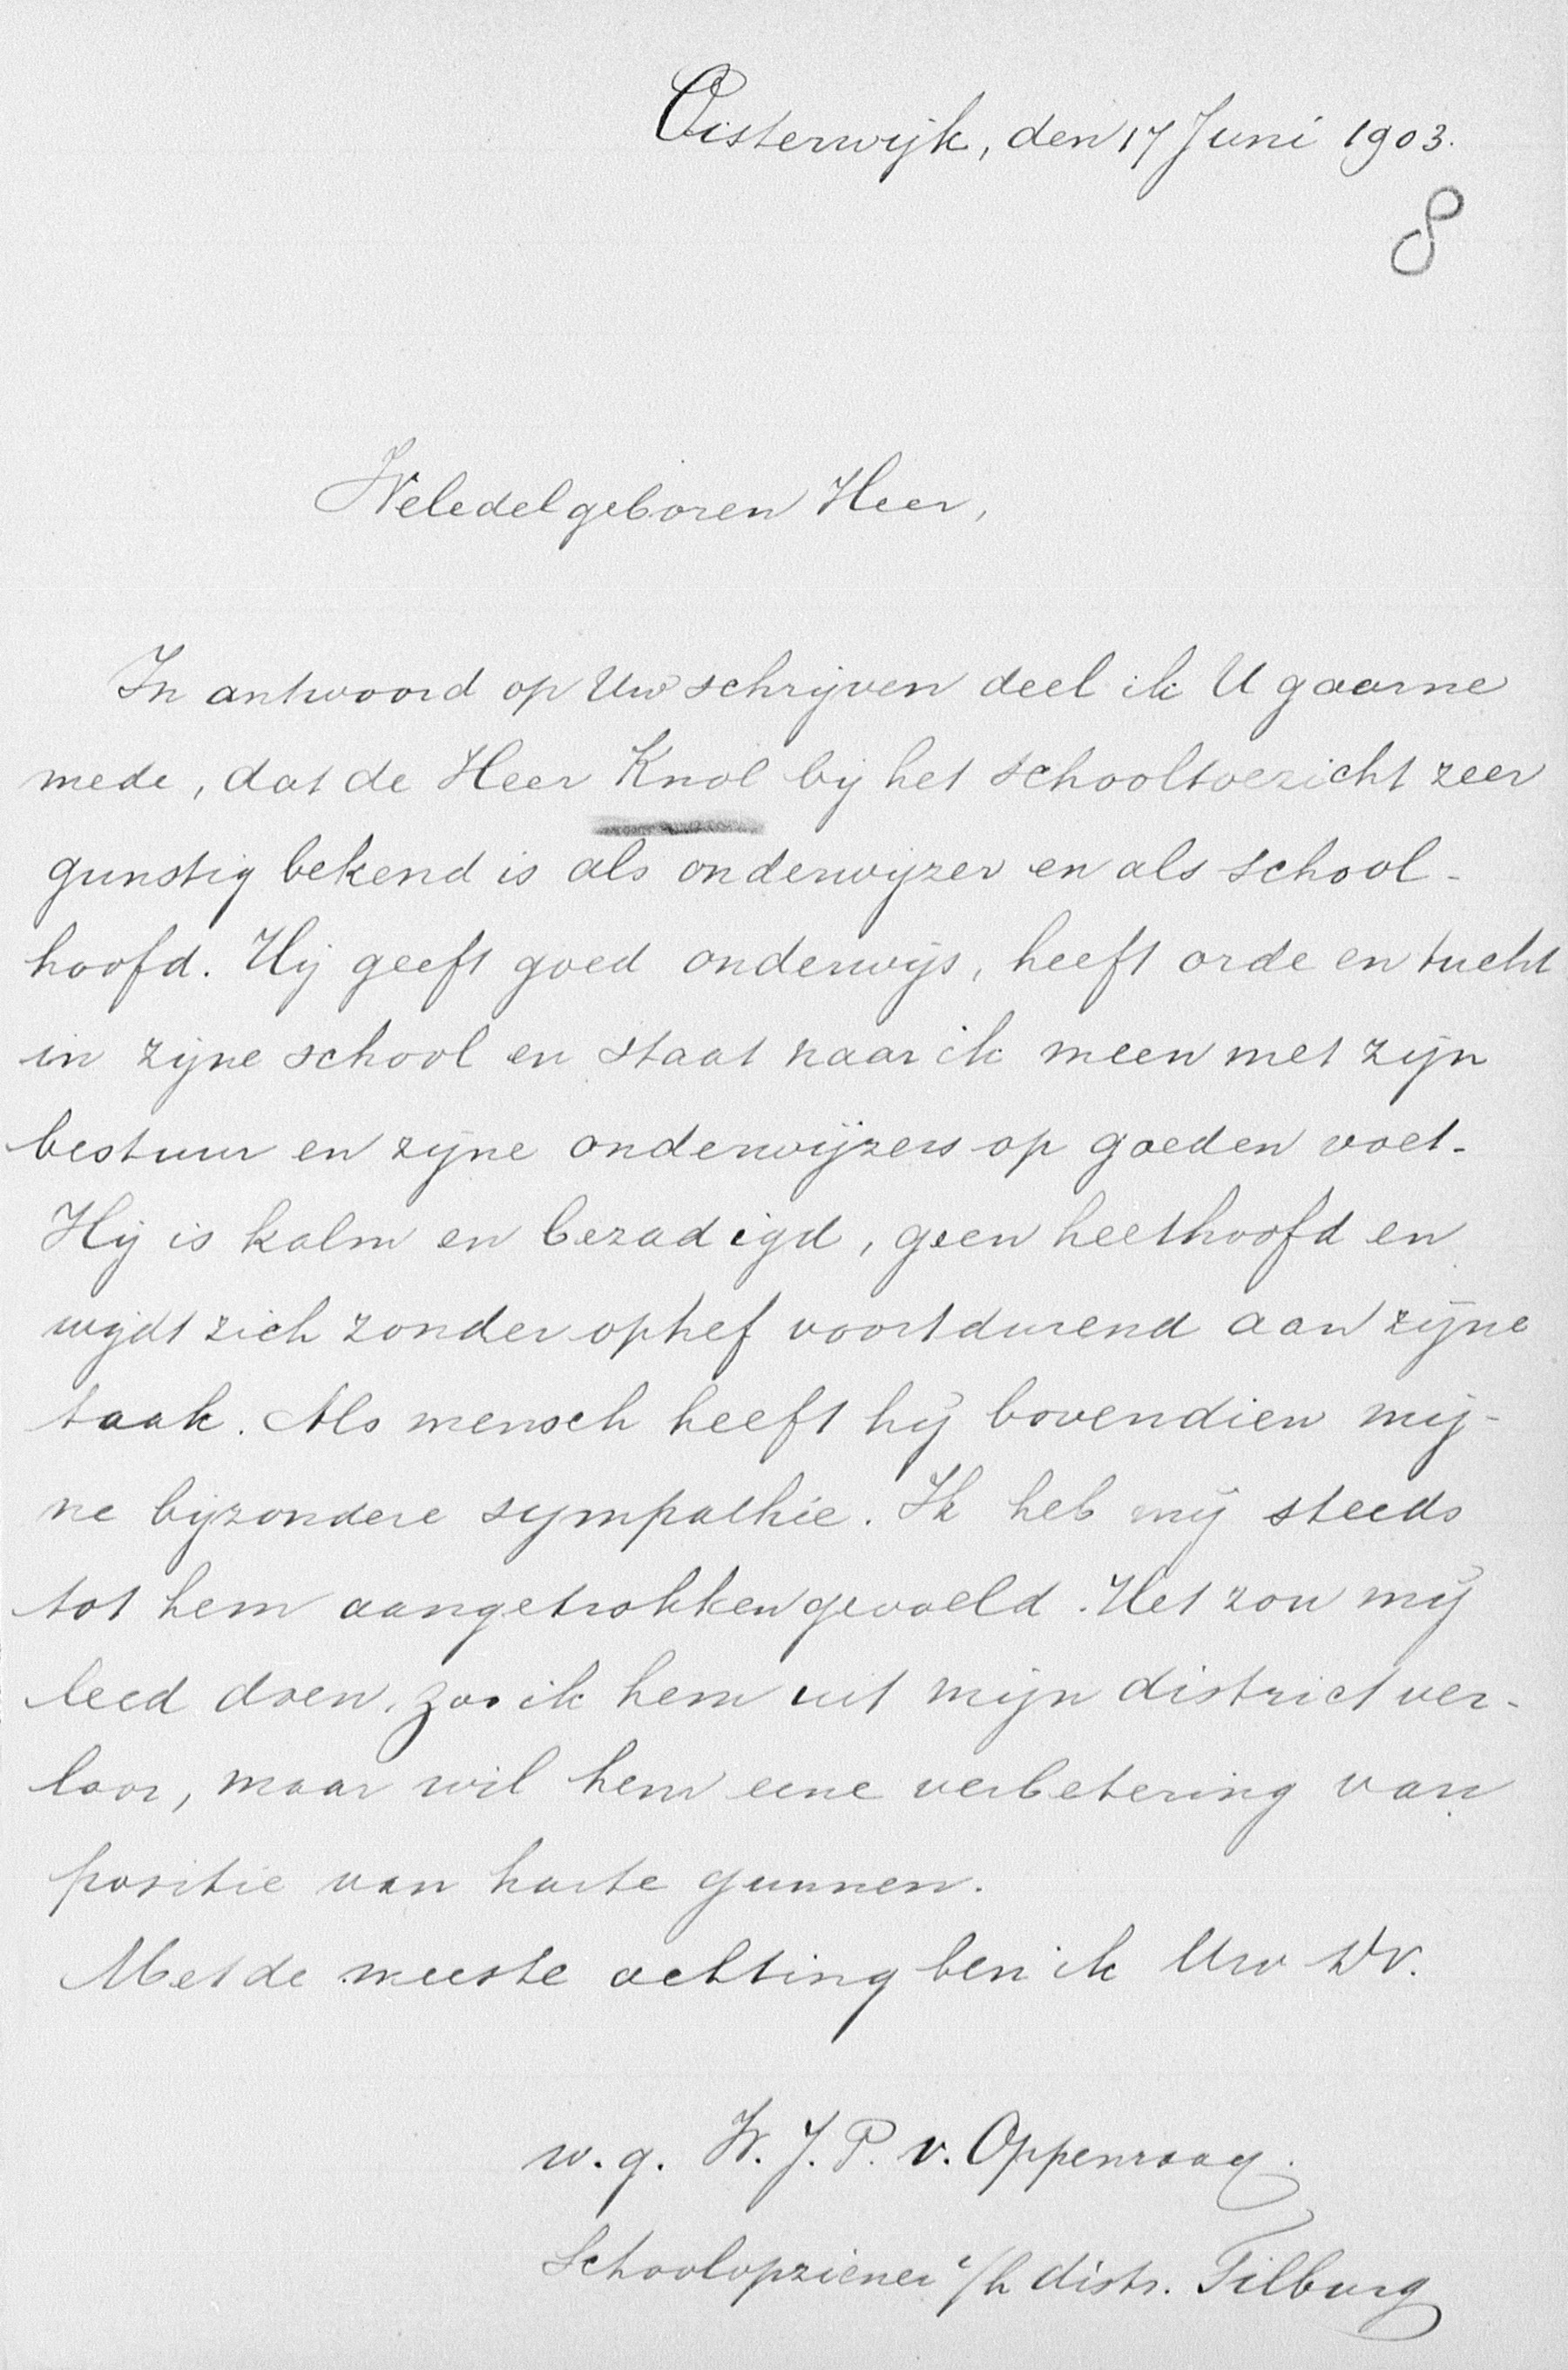 Oisterwijk, den 17 Juni 1903.
8
Weledelgeboren Heer,
In antwoord op Uw schrijven deel ik U gaarne
mede, dat de Heer Knol bij het schooltoezicht zeer
gunstig bekend is als onderwijzer en als school-
hoofd. Hij geeft goed onderwijs, heeft orde en tucht
in zijne school en staat naar ik meen met zijn
bestuur en zijne onderwijzers op goeden voet.
Hij is kalm en bezadigd, geen heethoofd en
wijdt zich zonder ophef voortdurend aan zijne
taak. Als mensch heeft hij bovendien mij-
ne bijzondere sympathie. Ik heb mij steeds
tot hem aangetrokken gevoeld. Het zou mij
leed doen, zoo ik hem uit mijn district ver-
loor, maar wil hem eene verbetering van
positie van harte gunnen.
Met de meeste achting ben ik Uw Dv.
w.g. W. J. P. v. Oppenraay.
Schoolopziener i/h distr. Tilburg